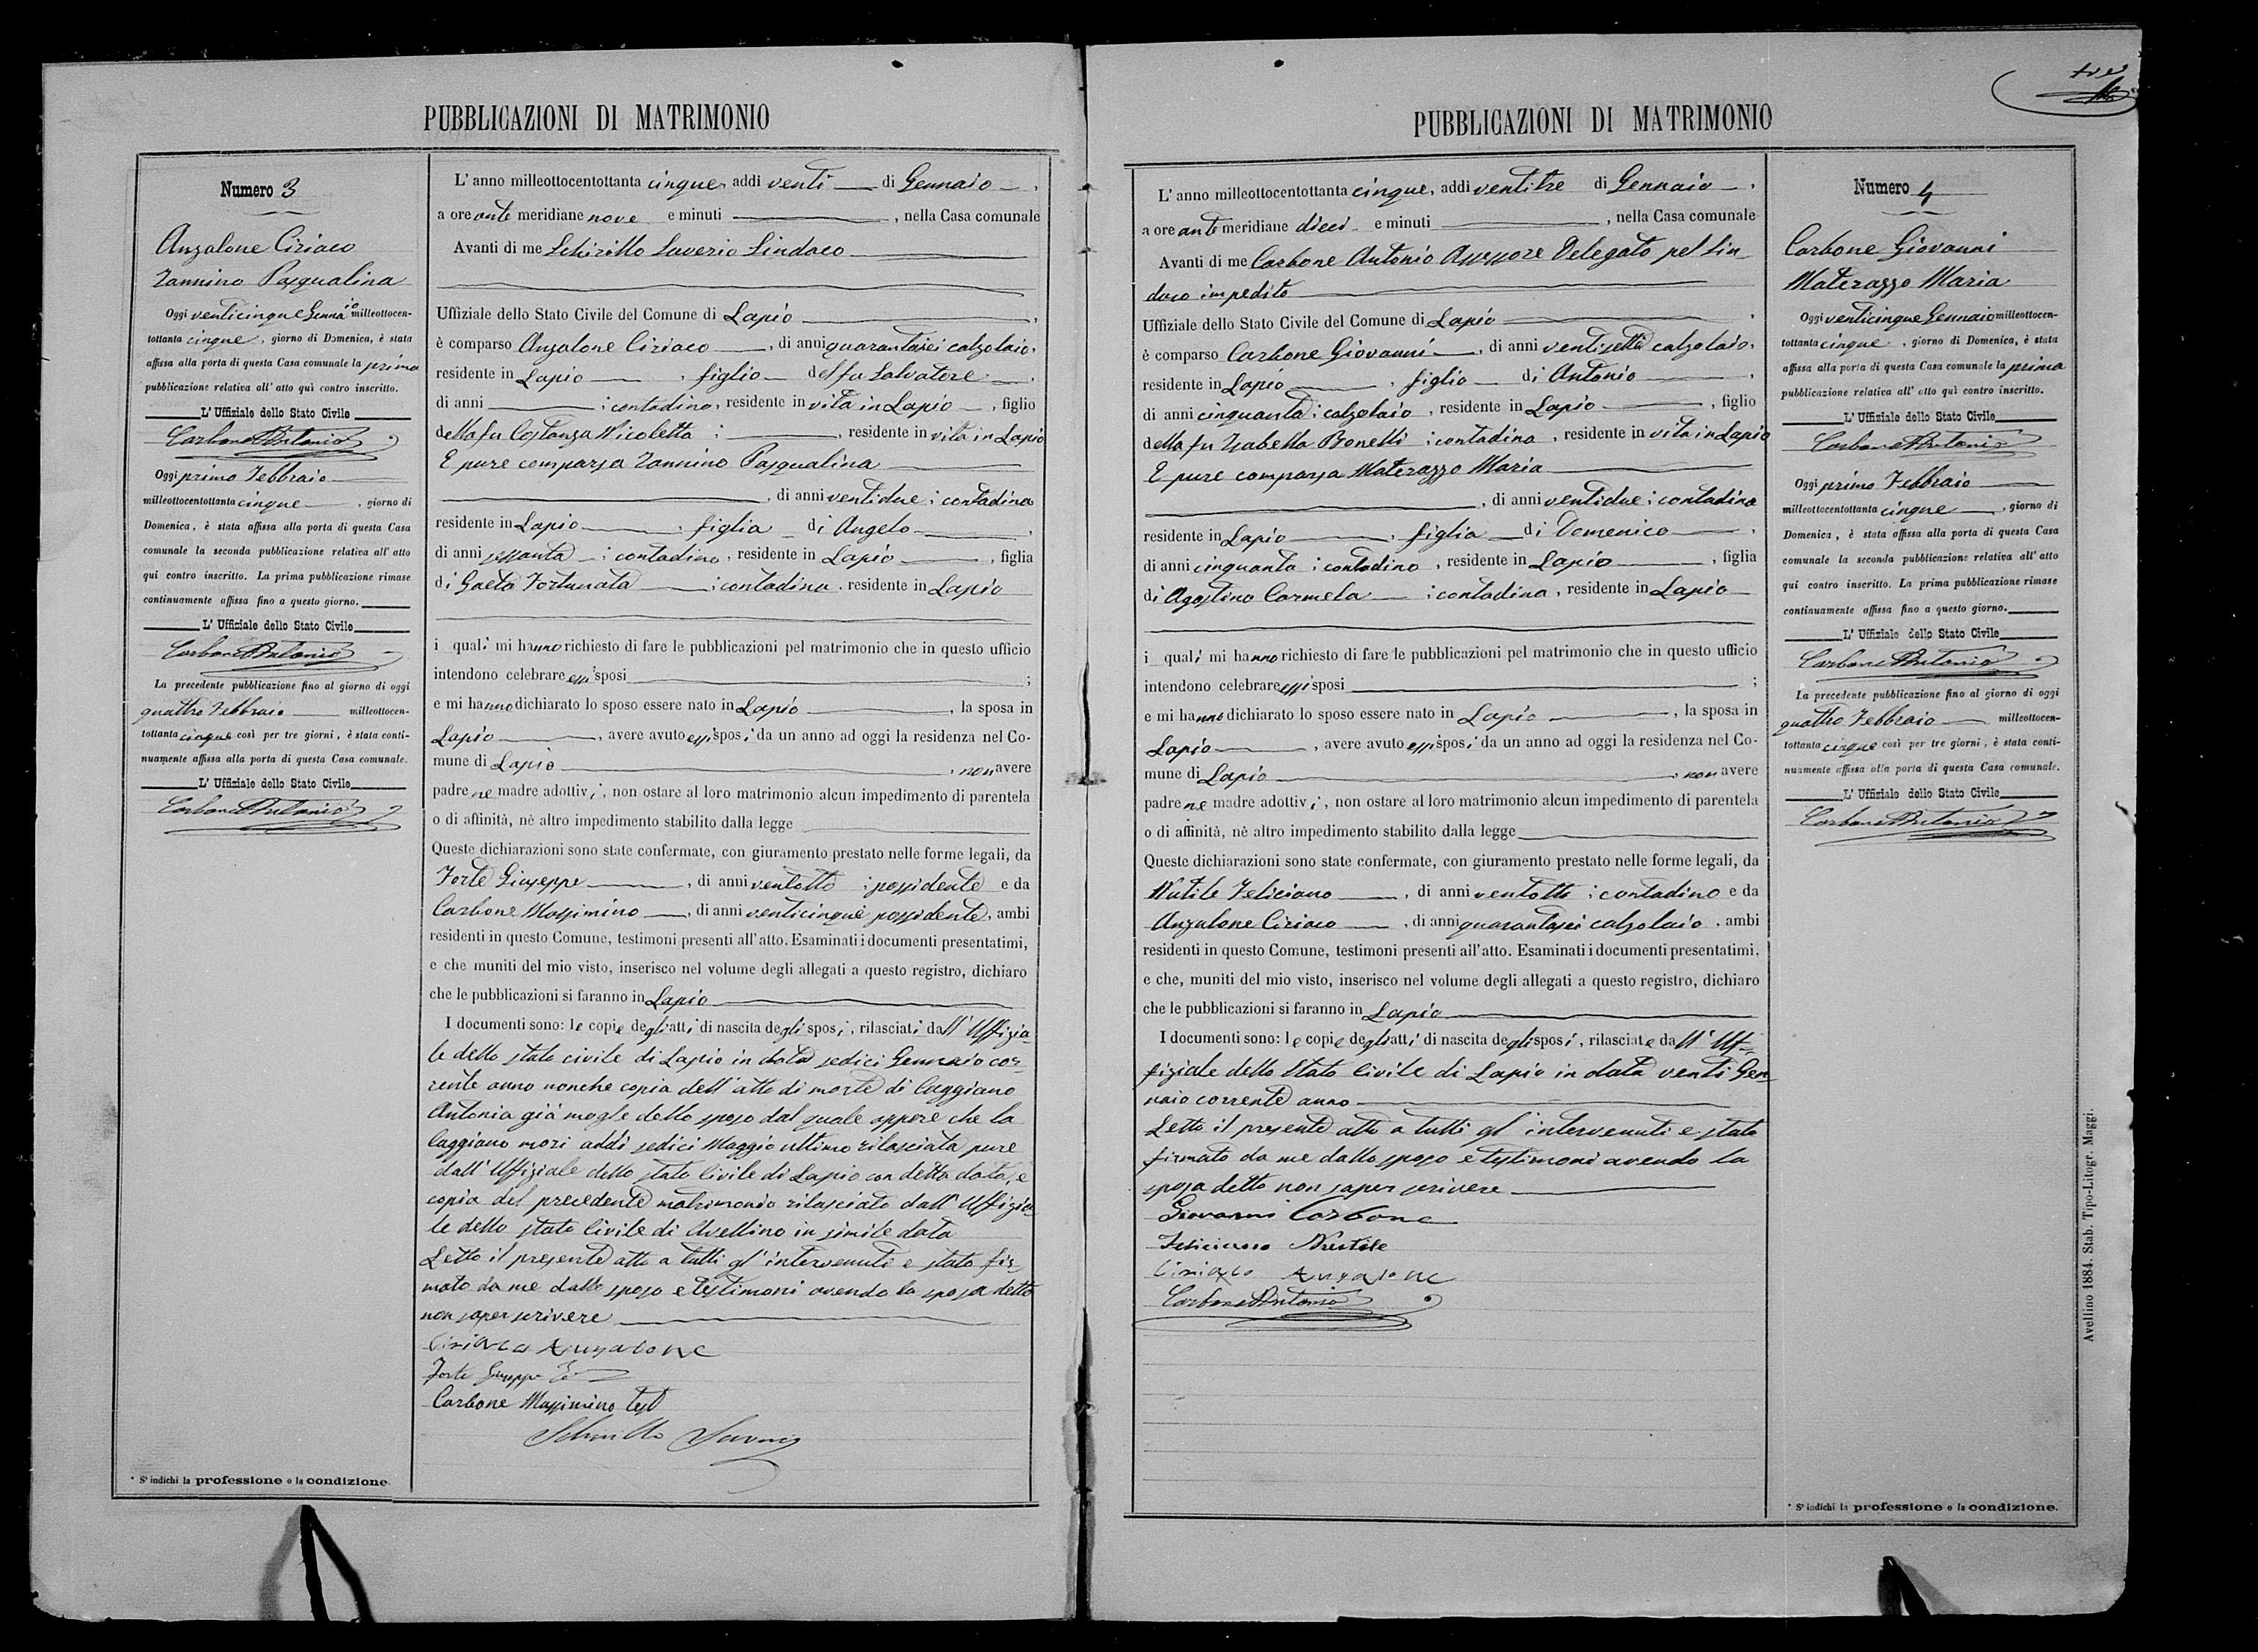 PUBBLICAZIONI DI MATRIMONIO
Numero 3
Anzalone Ciriaco
Zannino Pasqualina
Oggi venticinque Genna io milleottocen-
tottanta cinque, giorno di Domenica, è stata
affissa alla porta di questa Casa comunale la prima
pubblicazione relativa all' atto quì contro inscritto.
L' Uffiziale dello Stato Civile
Carbone Antonio
Oggi primo Febbraio
milleottocentottanta cinque, giorno di
Domenica, è stata affissa alla porta di questa Casa
comunale la seconda pubblicazione relativa all' atto
qui contro inscritto. La prima pubblicazione rimase
continuamente affissa fino a questo giorno.
L' Uffiziale dello Stato Civile
Carbone Antonio
La precedente pubblicazione fino al giorno di oggi
quattro Febbraio milleottocen-
tottanta cinque così per tre giorni, è stata conti-
nuamente affissa alla porta di questa Casa comunale.
L' Uffiziale dello Stato Civile
Carbone Antonio
* S' indichi la professione o la condizione.
L' anno milleottocentottanta cinque, addì venti di Gennaio,
a ore ante meridiane nove e minuti , nella Casa comunale
Avanti di me Schirillo Saverio Sindaco
Uffiziale dello Stato Civile del Comune di Lapio,
è comparso Anzalone Ciriaco, di anni quarantasei calzolaio,
residente in Lapio, figlio del fu Salvatore,
di anni ; contadino, residente in vita in Lapio, figlio
della fu Costanza Nicoletta ; , residente in vita in Lapio
E pure comparsa Zannino Pasqualina
, di anni ventidue ; contadina
residente in Lapio, figlia di Angelo,
di anni sessanta ; contadino, residente in Lapio, figlia
di Gaeta Fortunata ; contadina, residente in Lapio
i quali mi hanno richiesto di fare le pubblicazioni pel matrimonio che in questo ufficio
intendono celebrare essi sposi ;
e mi hanno dichiarato lo sposo essere nato in Lapio, la sposa in
Lapio, avere avuto essi sposi da un anno ad oggi la residenza nel Co-
mune di Lapio, non avere
padre ne madre adottivi, non ostare al loro matrimonio alcun impedimento di parentela
o di affinità, nè altro impedimento stabilito dalla legge
Queste dichiarazioni sono state confermate, con giuramento prestato nelle forme legali, da
Forte Giuseppe, di anni ventotto ; possidente e da
Carbone Massimino, di anni venticinque possidente, ambi
residenti in questo Comune, testimoni presenti all' atto. Esaminati i documenti presentatimi,
e che muniti del mio visto, inserisco nel volume degli allegati a questo registro, dichiaro
che le pubblicazioni si faranno in Lapio
I documenti sono: le copie degli atti di nascita degli sposi, rilasciati dall' Uffizia-
le dello stato civile di Lapio in data sedici Gennaio cor-
rente anno nonche copia dell' atto di morte di Caggiano
Antonia già mogle dello sposo dal quale appere che la
Caggiano morì addì sedici Maggio ultimo rilasciata pure
dall' Uffiziale dello stato Civile di Lapio con detta data, e
copia del precedente matrimonio rilasciato dall' Uffizia-
le dello stato Civile di Avellino in simile data
Letto il presente atto a tutti gl' intervenuti e stato fir-
mato da me dallo sposo e testimoni avendo la sposa detto
non saper scrivere
Ciriaco Anzalone
Forte Giuseppe
Carbone Massimino test
Schirillo Saverio
PUBBLICAZIONI DI MATRIMONIO
tre
L' anno milleottocentottanta cinque, addì ventitre di Gennaio,
a ore ante meridiane dieci e minuti , nella Casa comunale
Avanti di me Carbone Antonio Assessore Delegato pel Sin-
daco impedito
Uffiziale dello Stato Civile del Comune di Lapio,
è comparso Carbone Giovanni, di anni ventisette calzolaio,
residente in Lapio, figlio di Antonio,
di anni cinquanta ; calzolaio, residente in Lapio, figlio
della fu Isabella Bonelli ; contadina, residente in vita in Lapio
E pure comparsa Materazzo Maria
, di anni ventidue ; contadina
residente in Lapio, figlia di Domenico,
di anni cinquanta ; contadino, residente in Lapio, figlia
di Agostino Carmela ; contadina, residente in Lapio
i quali mi hanno richiesto di fare le pubblicazioni pel matrimonio che in questo ufficio
intendono celebrare essi sposi ;
e mi hanno dichiarato lo sposo essere nato in Lapio, la sposa in
Lapio, avere avuto essi sposi da un anno ad oggi la residenza nel Co-
mune di Lapio, non avere
padre ne madre adottivi, non ostare al loro matrimonio alcun impedimento di parentela
o di affinità, nè altro impedimento stabilito dalla legge
Queste dichiarazioni sono state confermate, con giuramento prestato nelle forme legali, da
Nutile Feliciano, di anni ventotto ; contadino e da
Anzalone Ciriaco, di anni quarantasei calzolaio, ambi
residenti in questo Comune, testimoni presenti all' atto. Esaminati i documenti presentatimi,
e che, muniti del mio visto, inserisco nel volume degli allegati a questo registro, dichiaro
che le pubblicazioni si faranno in Lapio
I documenti sono: le copie degli atti di nascita degli sposi, rilasciate dall' Uf-
fiziale dello Stato Civile di Lapio in data venti Gen-
naio corrente anno
Letto il presente atto a tutti gl' intervenuti e stato
firmato da me dallo sposo e testimoni avendo la
sposa detto non saper scrivere
Giovanni Carbone
Feliciano Nutile
Ciriaco Anzalone
Carbone Antonio
Numero 4
Carbone Giovanni
Materazzo Maria
Oggi venticinque Gennaio milleottocen-
tottanta cinque, giorno di Domenica, è stata
affissa alla porta di questa Casa comunale la prima
pubblicazione relativa all' atto quì contro inscritto.
L' Uffiziale dello Stato Civile
Carbone Antonio
Oggi primo Febbraio
milleottocentottanta cinque, giorno di
Domenica, è stata affissa alla porta di questa Casa
comunale la seconda pubblicazione relativa all' atto
qui contro inscritto. La prima pubblicazione rimase
continuamente affissa fino a questo giorno.
L' Uffiziale dello Stato Civile
Carbone Antonio
La precedente pubblicazione fino al giorno di oggi
quattro Febbraio milleottocen-
tottanta cinque così per tre giorni, è stata conti-
nuamente affissa alla porta di questa Casa comunale.
L' Uffiziale dello Stato Civile
Carbone Antonio
* S' indichi la professione o la condizione.
Avellino 1884. Stab. Tipo-Litogr. Maggi.